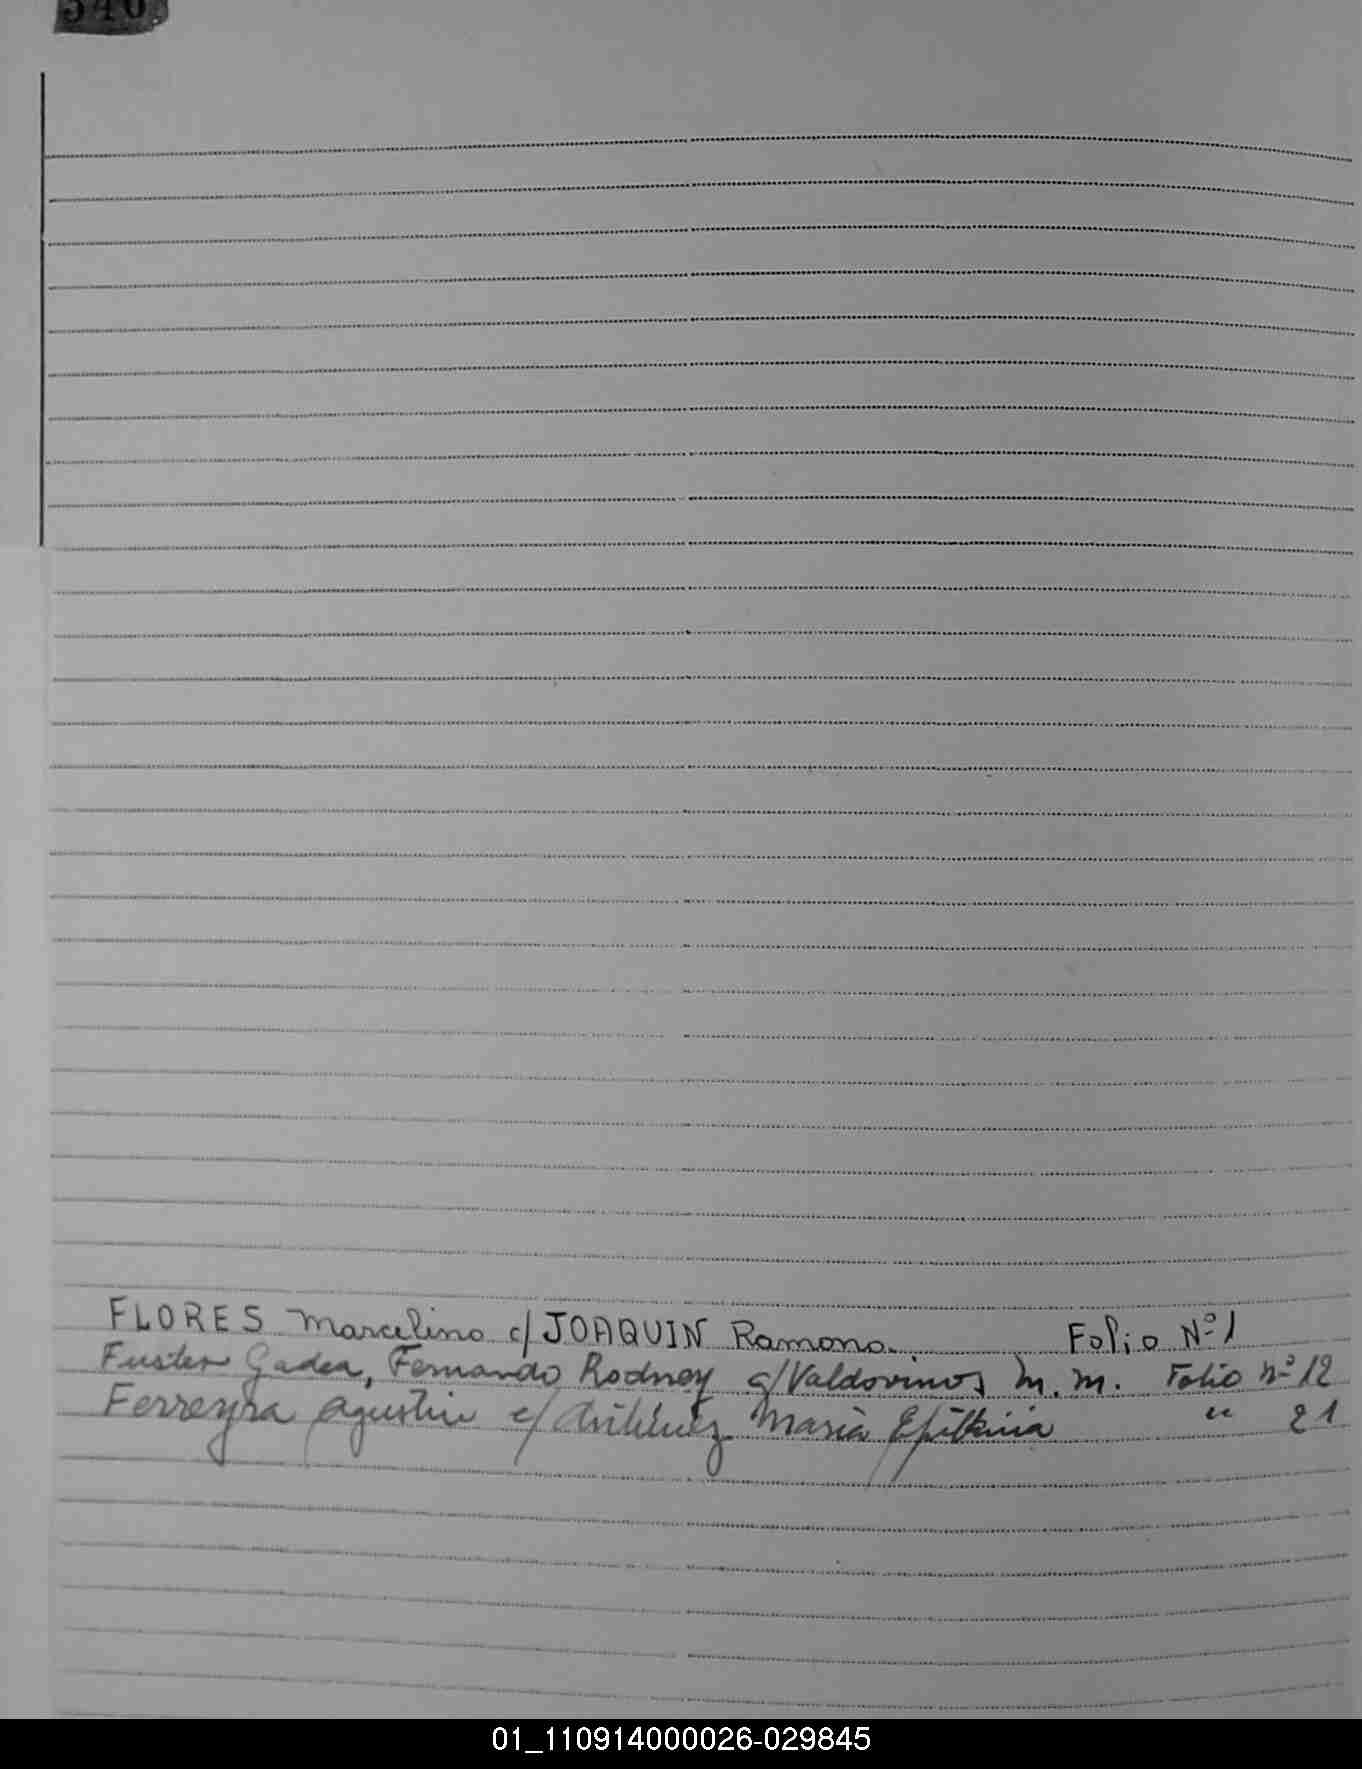 546
FLORES Marcelino c/ JOAQUIN Ramona. Folio Nº 1
Fuster Gadea, Fernando Rodney c/ Valdovinos M. M. Folio nº 12
Ferreyra Agustin c/ Maria " 21
01_110914000026-029845